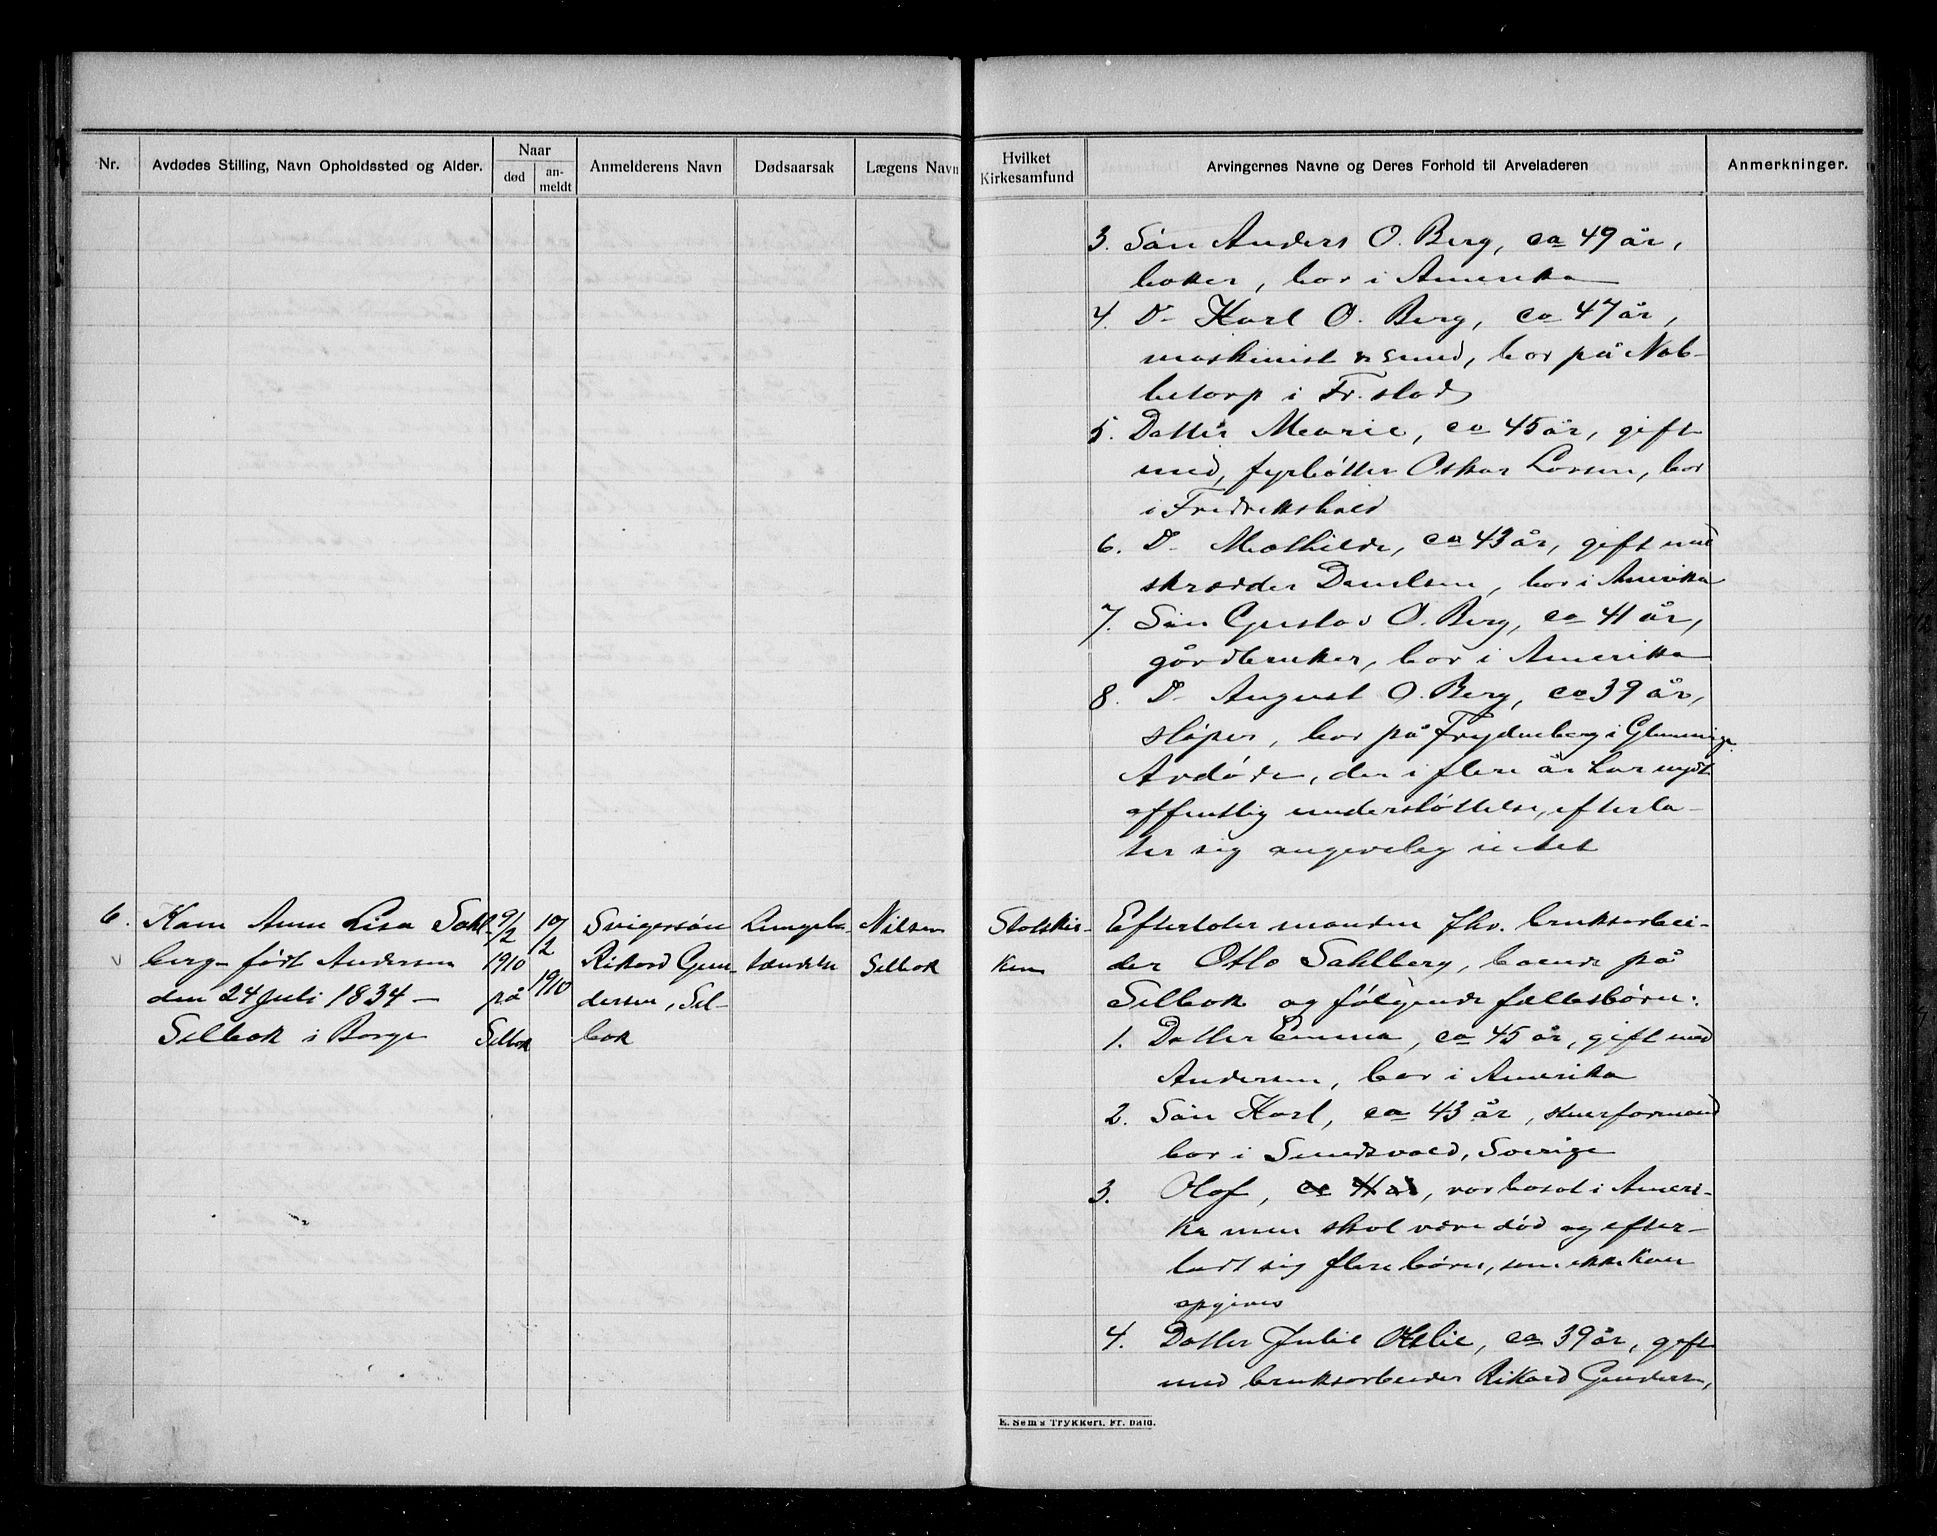 Nr.
Avdødes Stilling, Navn Opholdssted og Alder.
Naar
død
an-
meldt
Anmelderens Navn
Dødsaarsak
Lægens Navn
Hvilket
Kirkesamfund
Arvingernes Navne og Deres Forhold til Arveladeren
Anmerkninger.
3. Søn Anders O. Berg, ca 49 år,
baker, bor i Amerika
4. Do Karl O. Berg, ca 47 år,
maskinist & smed, bor på Nab-
betorp i Fr.stad
5. Datter Marie, ca 45 år, gift
med fyrbøter Oskar Larsen, bor
i Fredrikshald
6. Do Mathilde, ca 43 år, gift med
skrædder bor i Amerika
7. Søn Gustav O. Berg, ca 41 år,
gårdbruker, bor i Amerika
8. Do August O. Berg, ca 39 år,
sliper, bor på Frydenberg i Glemminge
Avdøde, der i flere år har nydt
offentlig understøttelse, efterla-
ter sig angivelig intet
6. Kone Anne Lisa Sahl-
berg født Andersen
den 24 Juli 1834 –
Selbak i Borge
9/2
1910
på
Selbak
10/2
1910
Svigersøn
Rikard Gun-
dersen, Sel-
bak
Lungebe-
tændelse
Nilsen
Selbak
Statskir-
ken
Efterlater manden fhv. bruksarbei-
der Otto Sahlberg, boende på
Selbak og følgende fællesbørn:
1. Datter Emma, ca 45 år, gift med
Andersen, bor i Amerika
2. Søn Karl, ca 43 år, skurformand
bor i Sundsvald, Sverige
3. Olof, ca 41 år, var bosat i Ameri-
ka men skal være død og efter-
ladt sig flere børn, som ikke kan
opgives
4. Datter Julie Otelie, ca 39 år, gift
med bruksarbeider Rikard Gundersen,
E. Sem's Trykkeri, Fr. hald.